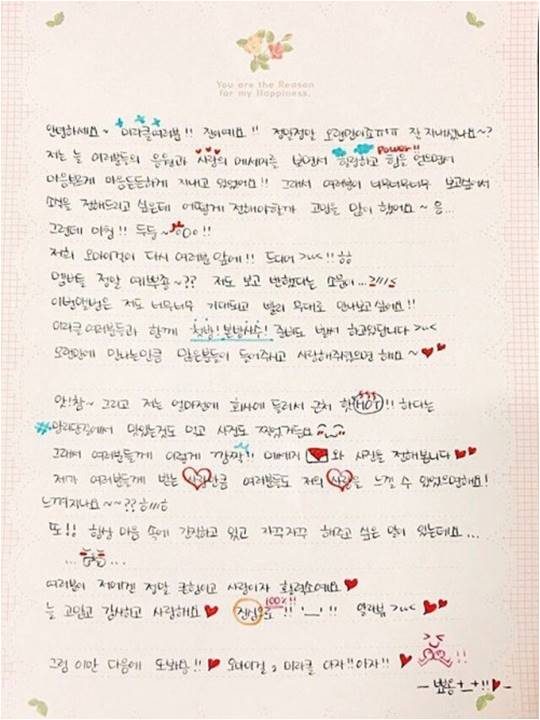 You are the Reason
for my Happiness.
안녕하세요~ 미라클여러분!! 진이에요!! 정말정말 오랜만이죠ㅠㅠ 잘 지내셨나요~?
저는 늘 여러분들의 응원과 사랑의 메세지를 보면서 힐링하고 힘을 얻으면서
Power!!
마음만은 든든하게 지내고 있었어요!! 그래서 여러분이 너무너무너무 보고싶어서
소식을 전해드리고 싶은데 어떻게 전해야할까 고민을 많이 했어요~ 음...
그런데 마침!! 두둥~ !!
저희 오마이걸이 다시 여러분 앞에!! 드디어 >_< !! ㅎㅎ
멤버들 정말 예쁘죠~?? 저도 보고 반했다는 소문이...
이번앨범은 저도 너무너무 기대되고 빨리 무대로 만나보고싶어요!!
미라클 여러분들과 함께 첫방! 본방사수! 준비도 벌써 하고있답니다 >_<
오랜만에 만나는만큼 많은분들이 들어주시고 사랑해주셨으면 해요~
앗!참~ 그리고 저는 얼마전에 회사에 들러서 근처 핫(HOT)!! 하다는
#망리단길에서 맛있는것도 먹고 사진도 찍었거든요
그래서 여러분들께 이렇게 깜짝!! 메세지 와 사진을 전해봅니다
제가 여러분들께 받는 사랑만큼 여러분들도 저의 사랑을 느낄 수 있었으면해요!
느껴지나요~~?? ㅎ///ㅎ
또!! 항상 마음 속에 간직하고 있고 자꾸자꾸 해주고 싶은 말이 있는데요...
... ...
여러분이 저에겐 정말 큰힘이고 사랑이자 활력소에요
늘 고맙고 감사하고 사랑해요 진심으로 100%!! '__' !! 알라뷰 >_<
그럼 이만 다음에 또봐용!! 오마이걸, 미라클 아자!! 아자!!
- 뾰롱 +_+!! -